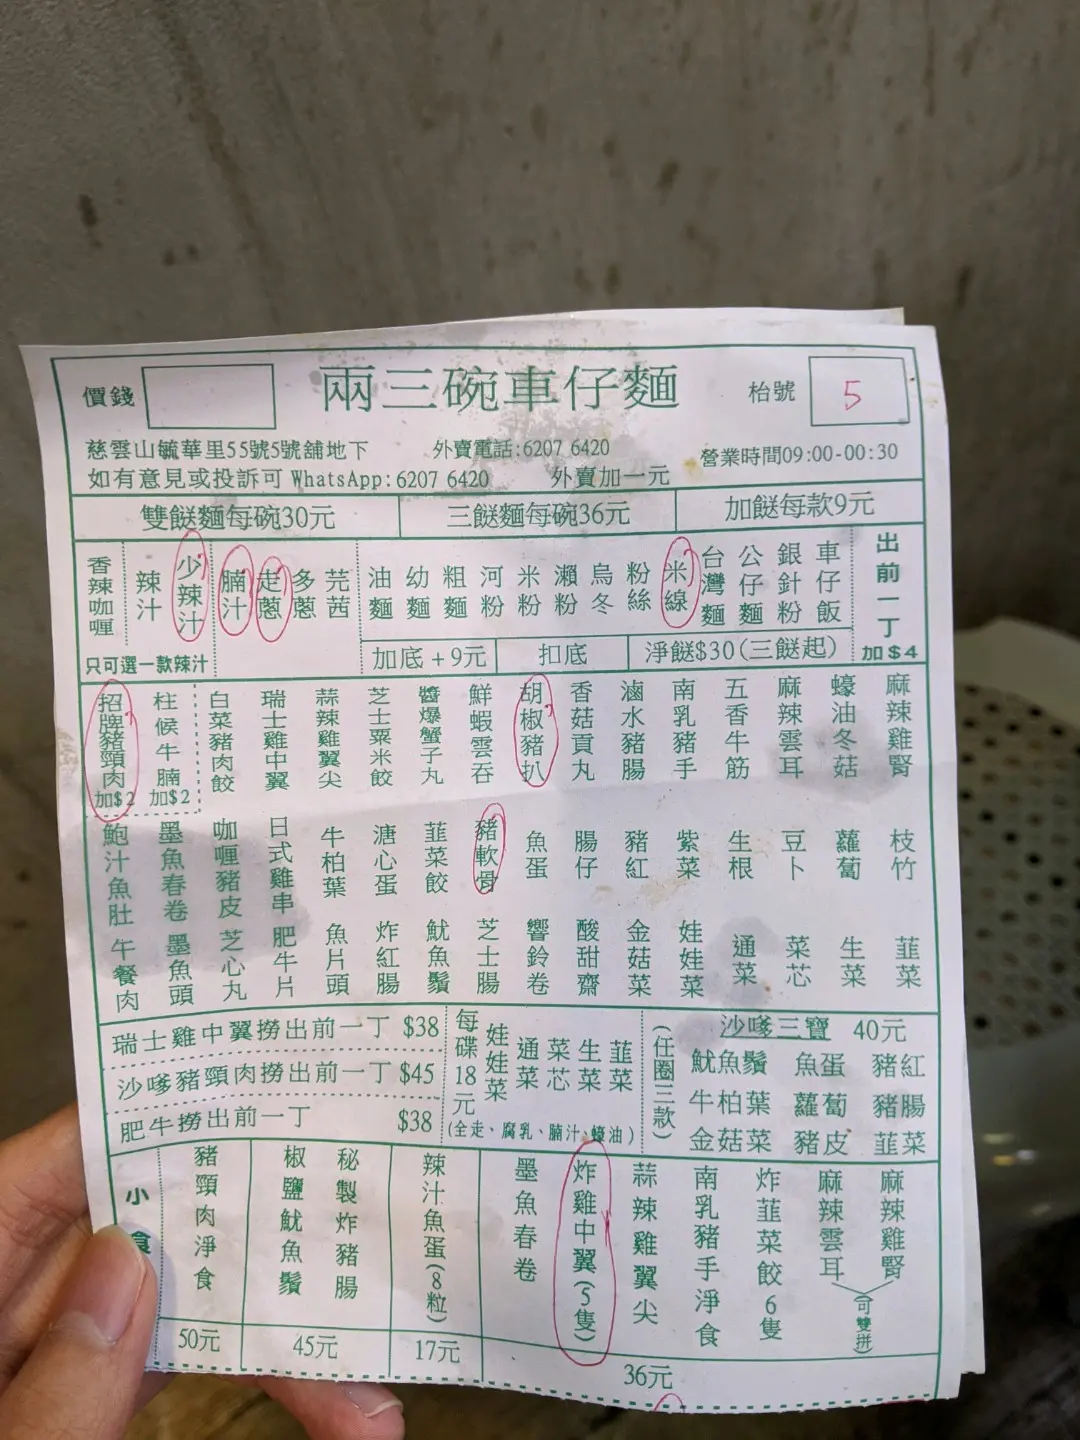 價錢
兩三碗車仔麵
枱號
5
慈雲山毓華里55號5號舖地下
外賣電話:6207 6420
營業時間09:00-00:30
如有意見或投訴可 WhatsApp:6207 6420
外賣加一元
雙餸麵每碗30元
三餸麵每碗36元
加餸每款9元
香辣咖喱
辣汁
少辣汁
只可選一款辣汁
腩汁
走蔥
多蔥
芫茜
油麵
幼麵
粗麵
河粉
米粉
瀨粉
烏冬
粉絲
米線
台灣麵
公仔麵
銀針粉
車仔飯
出前一丁
加$4
加底+9元
扣底
淨餸$30(三餸起)
招牌豬頸肉
加$2
柱候牛腩
加$2
白菜豬肉餃
瑞士雞中翼
蒜辣雞翼尖
芝士粟米餃
醬爆蟹子丸
鮮蝦雲吞
胡椒豬扒
香菇貢丸
滷水豬腸
南乳豬手
五香牛筋
麻辣雲耳
蠔油冬菇
麻辣雞腎
鮑汁魚肚
墨魚春卷
咖喱豬皮
日式雞串
牛柏葉
溏心蛋
韮菜餃
豬軟骨
魚蛋
腸仔
豬紅
紫菜
生根
豆卜
蘿蔔
枝竹
午餐肉
墨魚頭
芝心丸
肥牛片
魚片頭
炸紅腸
魷魚鬚
芝士腸
響鈴卷
酸甜齋
金菇菜
娃娃菜
通菜
菜芯
生菜
韮菜
瑞士雞中翼撈出前一丁 $38
沙嗲豬頸肉撈出前一丁 $45
肥牛撈出前一丁 $38
每碟18元
娃娃菜
通菜
菜芯
生菜
韮菜
(全走、腐乳、腩汁、蠔油)
(任圈三款)
沙嗲三寶 40元
魷魚鬚 魚蛋 豬紅
牛柏葉 蘿蔔 豬腸
金菇菜 豬皮 韮菜
小食
豬頸肉淨食
50元
椒鹽魷魚鬚
秘製炸豬腸
45元
辣汁魚蛋(8粒)
17元
墨魚春卷
炸雞中翼(5隻)
蒜辣雞翼尖
南乳豬手淨食
炸韮菜餃6隻
麻辣雲耳
麻辣雞腎
(可雙拼)
36元